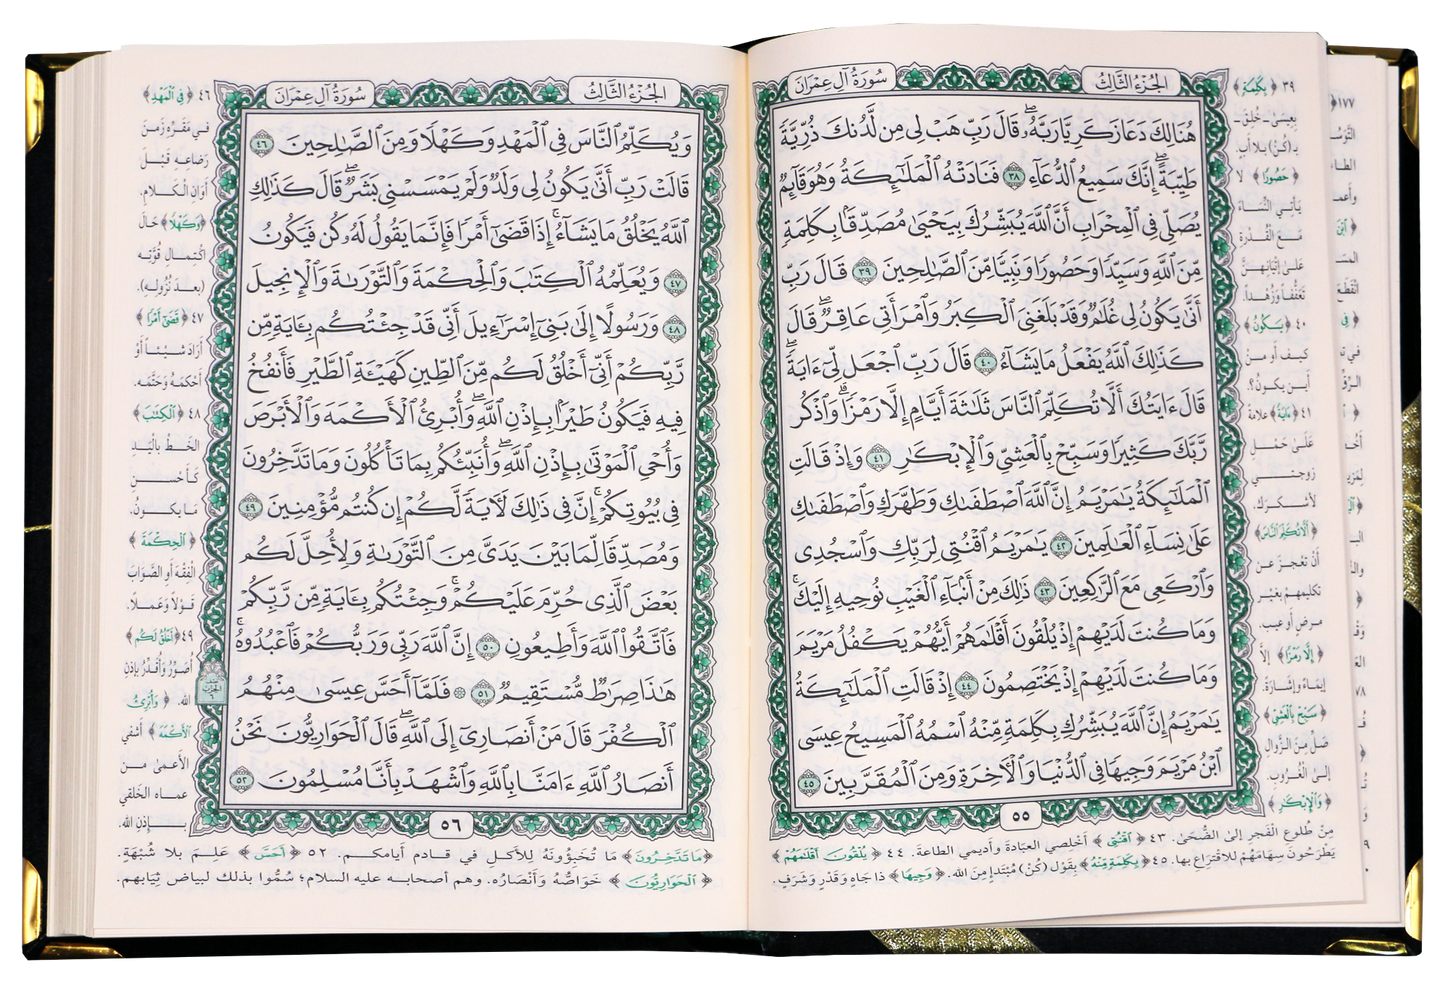 الجزء الثالث
سورة آل عمران
هُنَالِكَ دَعَا زَكَرِيَّا رَبَّهُۥۖ قَالَ رَبِّ هَبْ لِى مِن لَّدُنكَ ذُرِّيَّةً
طَيِّبَةًۖ إِنَّكَ سَمِيعُ ٱلدُّعَآءِ ٣٨ فَنَادَتْهُ ٱلْمَلَٰٓئِكَةُ وَهُوَ قَآئِمٌ
يُصَلِّى فِى ٱلْمِحْرَابِ أَنَّ ٱللَّهَ يُبَشِّرُكَ بِيَحْيَىٰ مُصَدِّقًۢا بِكَلِمَةٍ
مِّنَ ٱللَّهِ وَسَيِّدًا وَحَصُورًا وَنَبِيًّا مِّنَ ٱلصَّٰلِحِينَ ٣٩ قَالَ رَبِّ
أَنَّىٰ يَكُونُ لِى غُلَٰمٌ وَقَدْ بَلَغَنِىَ ٱلْكِبَرُ وَٱمْرَأَتِى عَاقِرٌۖ قَالَ
كَذَٰلِكَ ٱللَّهُ يَفْعَلُ مَا يَشَآءُ ٤٠ قَالَ رَبِّ ٱجْعَل لِّىٓ ءَايَةًۖ
قَالَ ءَايَتُكَ أَلَّا تُكَلِّمَ ٱلنَّاسَ ثَلَٰثَةَ أَيَّامٍ إِلَّا رَمْزًاۗ وَٱذْكُر
رَّبَّكَ كَثِيرًا وَسَبِّحْ بِٱلْعَشِىِّ وَٱلْإِبْكَٰرِ ٤١ وَإِذْ قَالَتِ
ٱلْمَلَٰٓئِكَةُ يَٰمَرْيَمُ إِنَّ ٱللَّهَ ٱصْطَفَىٰكِ وَطَهَّرَكِ وَٱصْطَفَىٰكِ
عَلَىٰ نِسَآءِ ٱلْعَٰلَمِينَ ٤٢ يَٰمَرْيَمُ ٱقْنُتِى لِرَبِّكِ وَٱسْجُدِى
وَٱرْكَعِى مَعَ ٱلرَّٰكِعِينَ ٤٣ ذَٰلِكَ مِنْ أَنۢبَآءِ ٱلْغَيْبِ نُوحِيهِ إِلَيْكَۚ
وَمَا كُنتَ لَدَيْهِمْ إِذْ يُلْقُونَ أَقْلَٰمَهُمْ أَيُّهُمْ يَكْفُلُ مَرْيَمَ
وَمَا كُنتَ لَدَيْهِمْ إِذْ يَخْتَصِمُونَ ٤٤ إِذْ قَالَتِ ٱلْمَلَٰٓئِكَةُ
يَٰمَرْيَمُ إِنَّ ٱللَّهَ يُبَشِّرُكِ بِكَلِمَةٍ مِّنْهُ ٱسْمُهُ ٱلْمَسِيحُ عِيسَى
ٱبْنُ مَرْيَمَ وَجِيهًا فِى ٱلدُّنْيَا وَٱلْءَاخِرَةِ وَمِنَ ٱلْمُقَرَّبِينَ ٤٥
٥٥
٣٩ ﴿بِكَلِمَةٍ﴾
بِعِيسَى - خُلِقَ -
بـ (كُنْ) بلا أبٍ.
﴿حَصُورًا﴾ لا
يَأتي النِّسَاءَ
مَعَ القُدْرَةِ
عَلَى إتْيَانِهِنَّ
تَعَفُّفاً وَزُهْداً.
٤٠ ﴿يَكُونُ﴾
كيفَ أو مِنْ
أينَ يكونُ؟.
٤١ ﴿ءَايَةً﴾ علامةً
عَلَى حَمْلِ
زوجتي
لأشكُرَكَ.
﴿أَلَّا تُكَلِّمَ النَّاسَ﴾
أنْ تعْجزَ عن
تكليمهمْ بغَيْرِ
مرضٍ أو عيب.
﴿إِلَّا رَمْزًا﴾ إلَّا
إيمَاءً وإشَارَةً.
﴿سَبِّحْ بِالْعَشِيِّ﴾
صَلِّ مِنَ الزَّوالِ
إلى الغُرُوبِ.
﴿وَالْإِبْكَارِ﴾
مِنْ طُلوعِ الفَجرِ إلى الضُّحَى. ٤٣ ﴿اقْنُتِي﴾ أخْلِصِي العِبَادَةَ وأديمي الطاعةَ. ٤٤ ﴿يُلْقُونَ أَقْلَامَهُمْ﴾
يَطْرَحُونَ سِهَامَهُمْ للاقتِرَاعِ بها. ٤٥ ﴿بِكَلِمَةٍ مِنْهُ﴾ بِقَوْلِ (كُنْ) مُبْتَدإٍ مِنَ الله. ﴿وَجِيهًا﴾ ذا جَاهٍ وَقَدْرٍ وَشَرَفٍ.
الجزء الثالث
سورة آل عمران
وَيُكَلِّمُ ٱلنَّاسَ فِى ٱلْمَهْدِ وَكَهْلًا وَمِنَ ٱلصَّٰلِحِينَ ٤٦
قَالَتْ رَبِّ أَنَّىٰ يَكُونُ لِى وَلَدٌ وَلَمْ يَمْسَسْنِى بَشَرٌۖ قَالَ كَذَٰلِكِ
ٱللَّهُ يَخْلُقُ مَا يَشَآءُۚ إِذَا قَضَىٰٓ أَمْرًا فَإِنَّمَا يَقُولُ لَهُۥ كُن فَيَكُونُ
٤٧ وَيُعَلِّمُهُ ٱلْكِتَٰبَ وَٱلْحِكْمَةَ وَٱلتَّوْرَىٰةَ وَٱلْإِنجِيلَ
٤٨ وَرَسُولًا إِلَىٰ بَنِىٓ إِسْرَٰٓءِيلَ أَنِّى قَدْ جِئْتُكُم بِـَٔايَةٍ مِّن
رَّبِّكُمْ أَنِّىٓ أَخْلُقُ لَكُم مِّنَ ٱلطِّينِ كَهَيْـَٔةِ ٱلطَّيْرِ فَأَنفُخُ
فِيهِ فَيَكُونُ طَيْرًۢا بِإِذْنِ ٱللَّهِۖ وَأُبْرِئُ ٱلْأَكْمَهَ وَٱلْأَبْرَصَ
وَأُحْىِ ٱلْمَوْتَىٰ بِإِذْنِ ٱللَّهِۖ وَأُنَبِّئُكُم بِمَا تَأْكُلُونَ وَمَا تَدَّخِرُونَ
فِى بُيُوتِكُمْۚ إِنَّ فِى ذَٰلِكَ لَءَايَةً لَّكُمْ إِن كُنتُم مُّؤْمِنِينَ ٤٩
وَمُصَدِّقًا لِّمَا بَيْنَ يَدَىَّ مِنَ ٱلتَّوْرَىٰةِ وَلِأُحِلَّ لَكُم
بَعْضَ ٱلَّذِى حُرِّمَ عَلَيْكُمْۚ وَجِئْتُكُم بِـَٔايَةٍ مِّن رَّبِّكُمْ
فَٱتَّقُوا۟ ٱللَّهَ وَأَطِيعُونِ ٥٠ إِنَّ ٱللَّهَ رَبِّى وَرَبُّكُمْ فَٱعْبُدُوهُۗ
هَٰذَا صِرَٰطٌ مُّسْتَقِيمٌ ٥١ ۞ فَلَمَّآ أَحَسَّ عِيسَىٰ مِنْهُمُ
ٱلْكُفْرَ قَالَ مَنْ أَنصَارِىٓ إِلَى ٱللَّهِۖ قَالَ ٱلْحَوَارِيُّونَ نَحْنُ
أَنصَارُ ٱللَّهِ ءَامَنَّا بِٱللَّهِ وَٱشْهَدْ بِأَنَّا مُسْلِمُونَ ٥٢
٥٦
الحزب
٦
٤٦ ﴿فِي الْمَهْدِ﴾
في مَقَرِّهِ زَمَنَ
رَضَاعِهِ قَبْلَ
أوَانِ الْكَلامِ.
﴿وَكَهْلًا﴾ حَالَ
اكْتِمَالِ قُوَّتِهِ
(بعدَ نُزُولِهِ).
٤٧ ﴿قَضَى أَمْرًا﴾
أرَادَ شَيْئاً أوْ
أحْكَمَهُ وَحَتَّمَه.
٤٨ ﴿الْكِتَابَ﴾
الخَطَّ بِالْيَدِ
كَأحْسَنِ
مَا يكونُ.
﴿الْحِكْمَةَ﴾
الْفِقْهَ أو الصَّوَابَ
قَوْلاً وَعَمَلاً.
٤٩ ﴿أَخْلُقُ لَكُم﴾
أُصَوِّرُ وَأُقَدِّرُ بإذنِ
الله. ﴿وَأُبْرِئُ
الْأَكْمَهَ﴾ أَشْفي
الأعمَى مِنَ
عماه الخَلْقي
بـإذنِ الله.
﴿مَا تَدَّخِرُونَ﴾ مَا تُخَبِّئُونَهُ لِلأكلِ في قادم أيامكم. ٥٢ ﴿أَحَسَّ﴾ عَلِمَ بلا شُبْهَةٍ.
﴿الْحَوَارِيُّونَ﴾ خَوَاصُّهُ وَأنْصَارُه. وهم أصحابه عليه السلام؛ سُمُّوا بذلك لبياض ثِيَابهم.